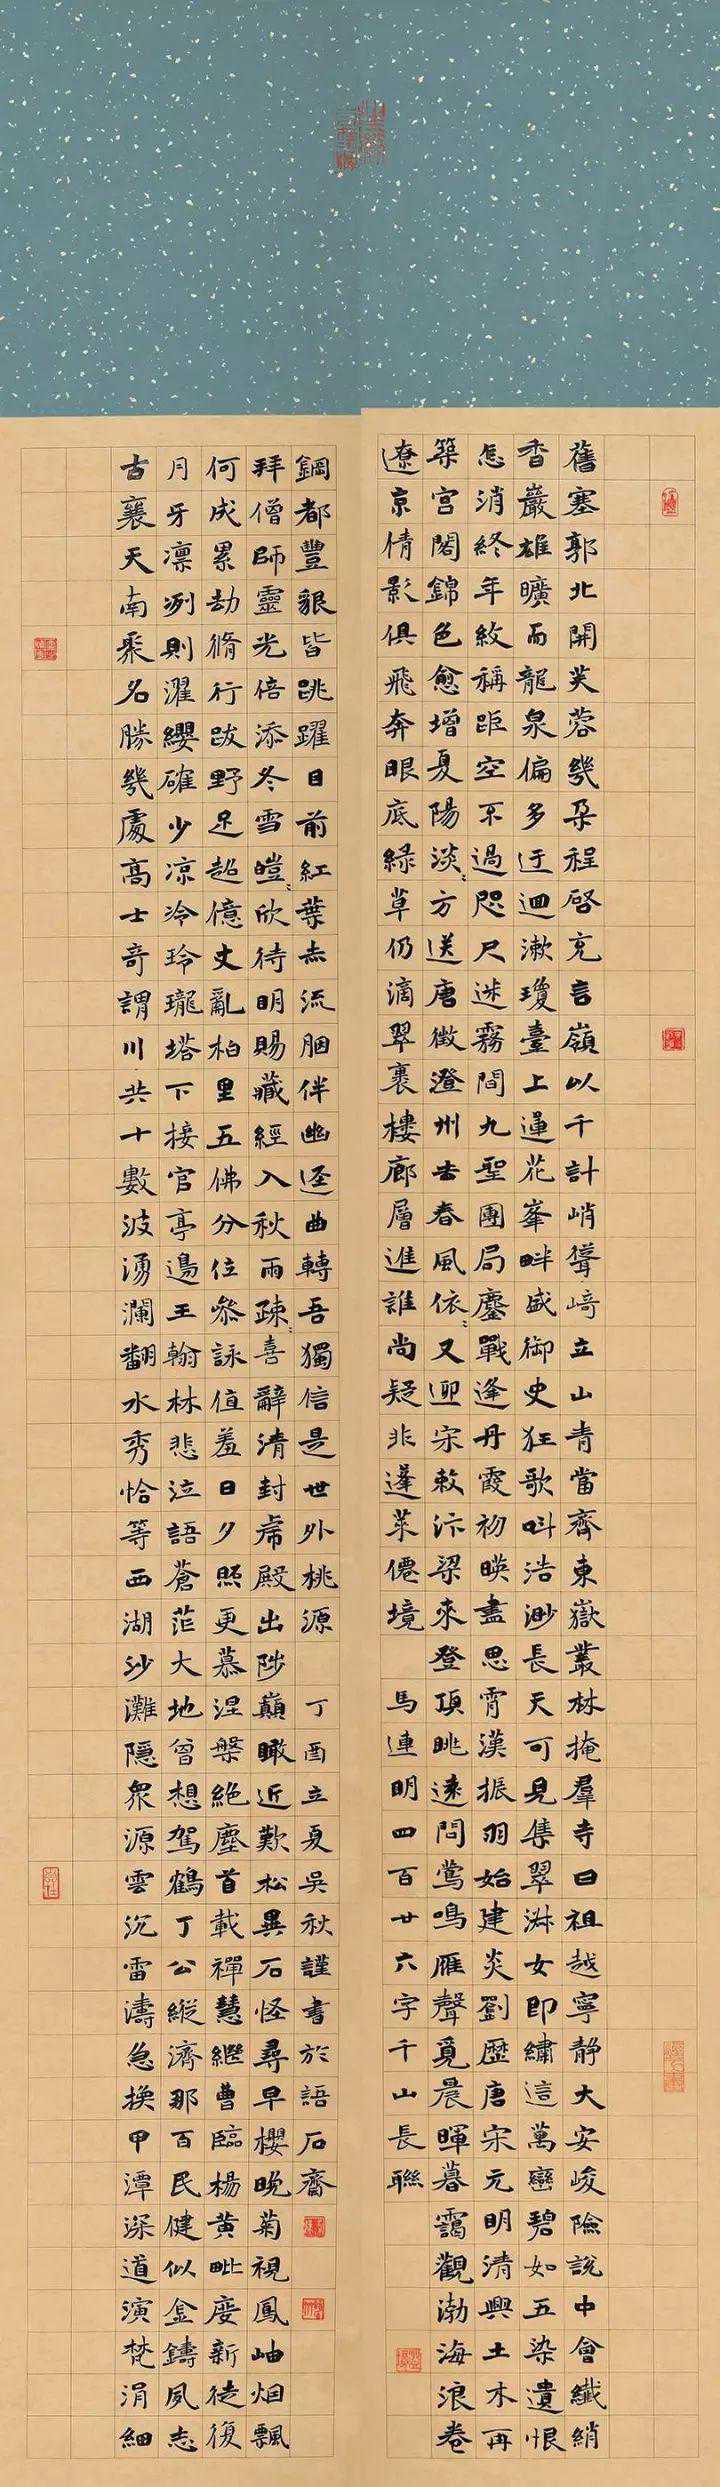 舊塞郭北開芙蓉幾朵程啓充言嶺以千計峭聳崎立山青當齊東嶽叢林掩羣寺曰祖越寧靜大安峻險說中會纖綃
香巖雄曠而龍泉偏多迂迴漱瓊臺上蓮花峯畔盛御史狂歌叫浩渺長天可見集翠湫女即繡這萬巒碧如五染遺恨
怎消終年紋稱距空不過咫尺迷霧間九聖團局鏖戰逢丹霞初暎盡思霄漢振羽始建炎劉歷唐宋元明清興土木再
築宮閣錦色愈增夏陽淡〻方送唐徵澄州去春風依〻又迎宋敕汴梁來登頂眺遠問鶯鳴雁聲覓晨暉暮靄觀渤海浪卷
遼京情影俱飛奔眼底綠草仍滴翠裹樓廊層進誰尚疑非蓬萊僊境 馬連明四百廿六字千山長聯
古襄天南聚名勝幾處高士奇謂川共十數波湧瀾翻水秀恰等西湖沙灘隱眾源雲沉雷濤急換甲潭深道演梵涓細
月牙凛冽則濯纓確少涼冷玲瓏塔下接官亭邊王翰林悲泣語蒼茫大地曾想駕鶴丁公縱濟那百民健似金鑄夙志
何成累劫脩行跋野足超億丈亂柏里五佛分位參詠值羞日夕照更慕涅槃絕塵首載禪慧繼曹臨楊黃毗慶新徒復
拜僧師靈光倍添冬雪暟〻欣待明賜藏經入秋雨疎〻喜辭清封虎殿出陟巔瞰近歎松異石怪尋早櫻晚菊視鳳岫烟飄
鋼都豐貌皆跳躍目前紅葉亦流胭伴幽逕曲轉吾獨信是世外桃源 丁酉立夏吳秋謹書於語石齋